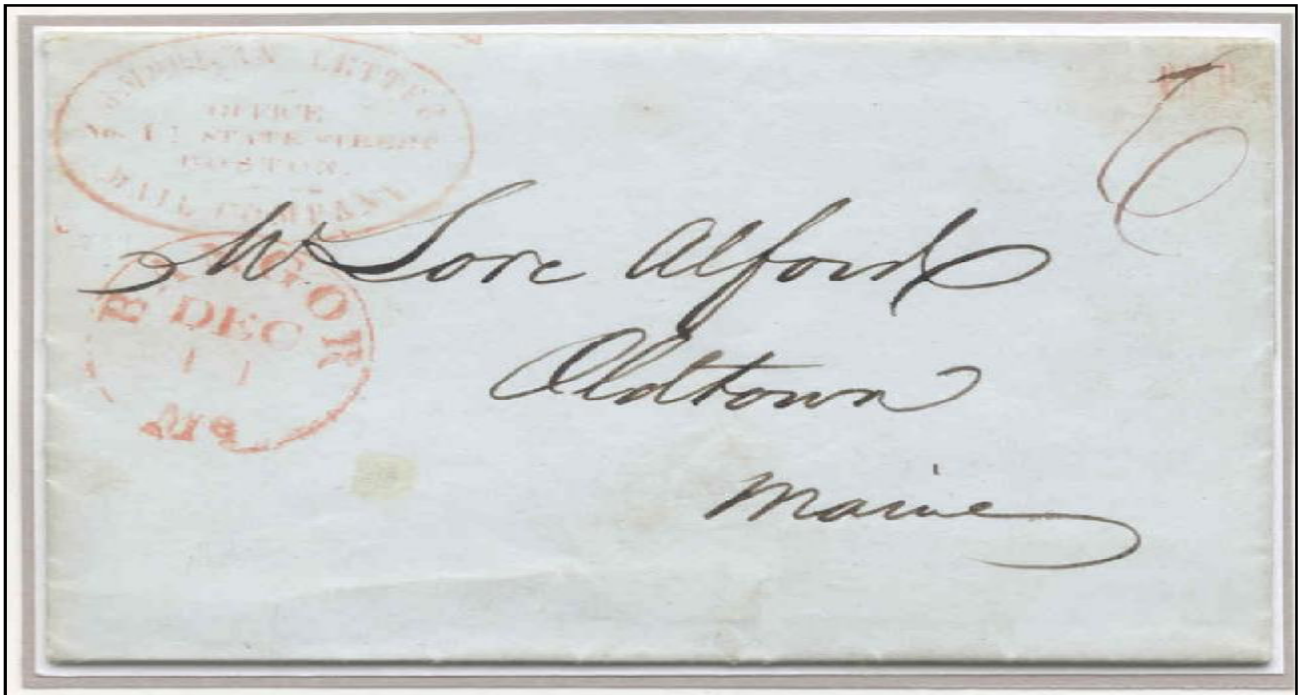 AMERICAN LETTER
OFFICE
No. STATE STREET
BOSTON.
MAIL COMPANY
6
BANGOR
DEC
11
Me
Mr Lore Alford
Oldtown
Maine